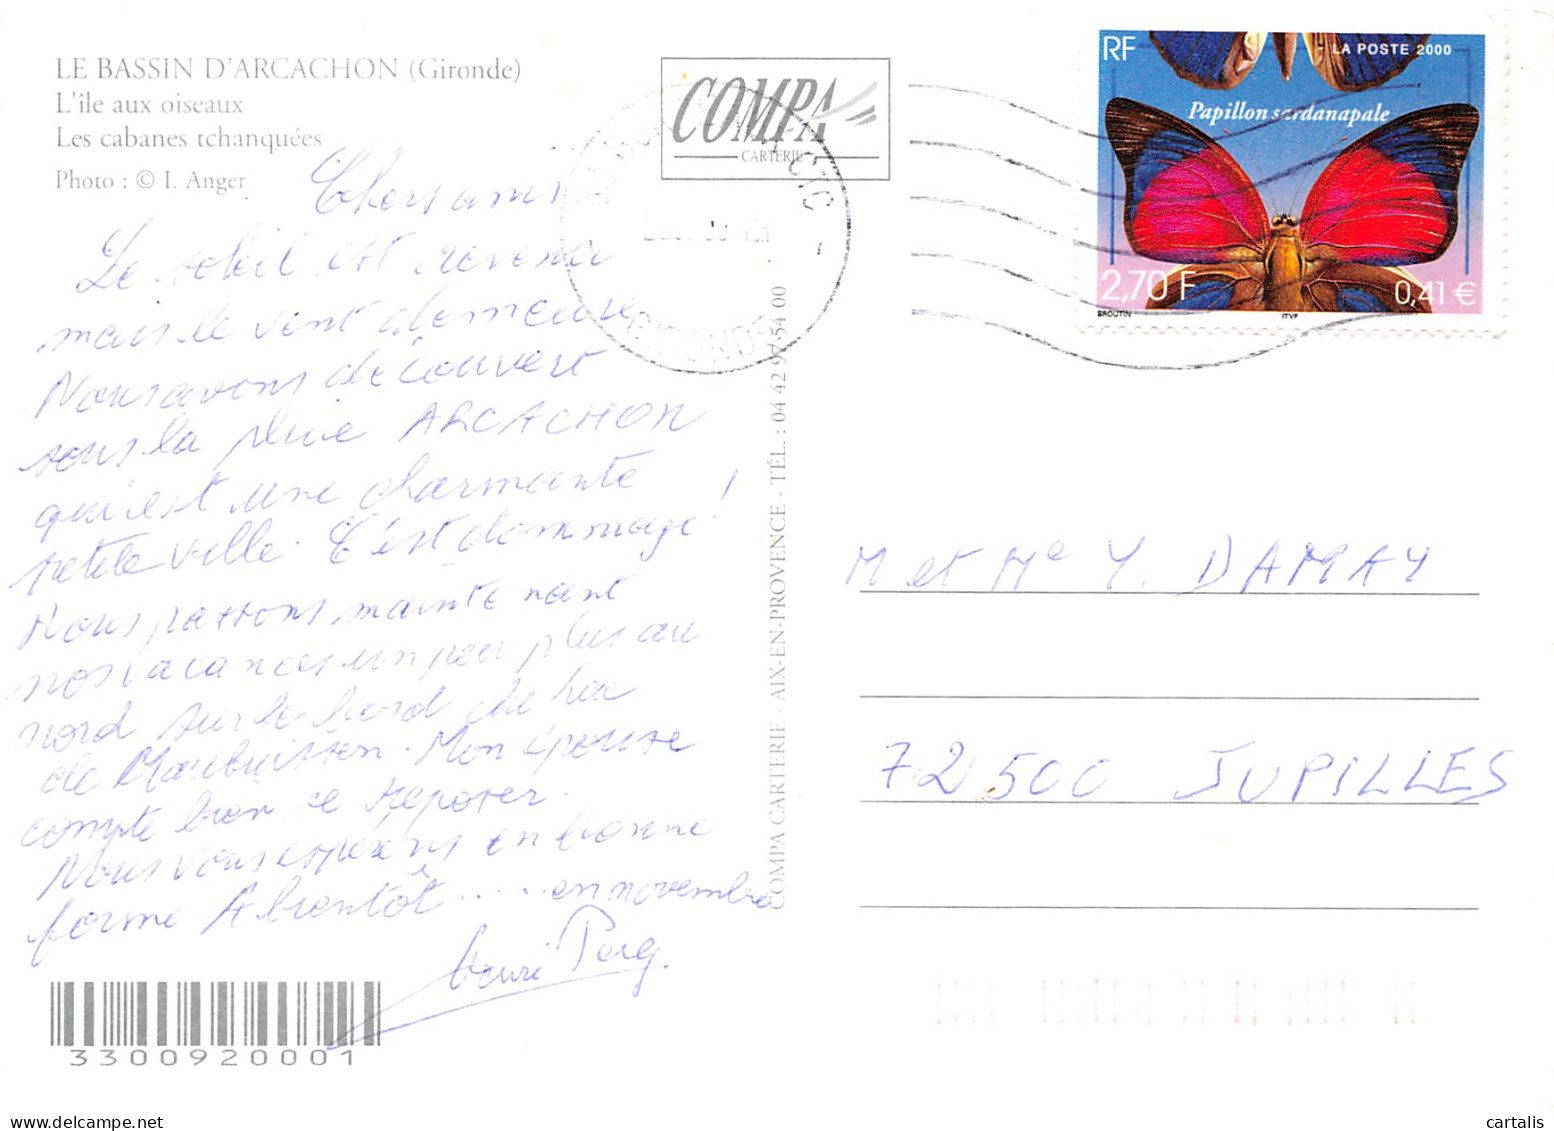 LE BASSIN D'ARCACHON (Gironde)
L'île aux oiseaux
Les cabanes tchanquées
Photo : © I. Anger
COMPA
CARTERIE
RF
LA POSTE 2000
Papillon sardanapale
2,70 F
0,41 €
BROUTIN
ITVF
CTC
GIRONDE
Chers amis
Le soleil est revenu
mais le vent demeure
Nous avons découvert
sous la pluie ARCACHON
qui est une charmante
petite ville. C'est dommage !
Nous passons maintenant
nos vacances un peu plus au
nord sur le bord du Lac
de Maubuisson. Mon épouse
compte bien se reposer.
Nous vous espérons en bonne
forme A bientôt .... en novembre
Henri
COMPA CARTERIE - AIX-EN-PROVENCE - TÉL. : 04 42 97 54 00
M et Me Y. DAMAY
72500 JUPILLES
3300920001
cartalis
www.delcampe.net